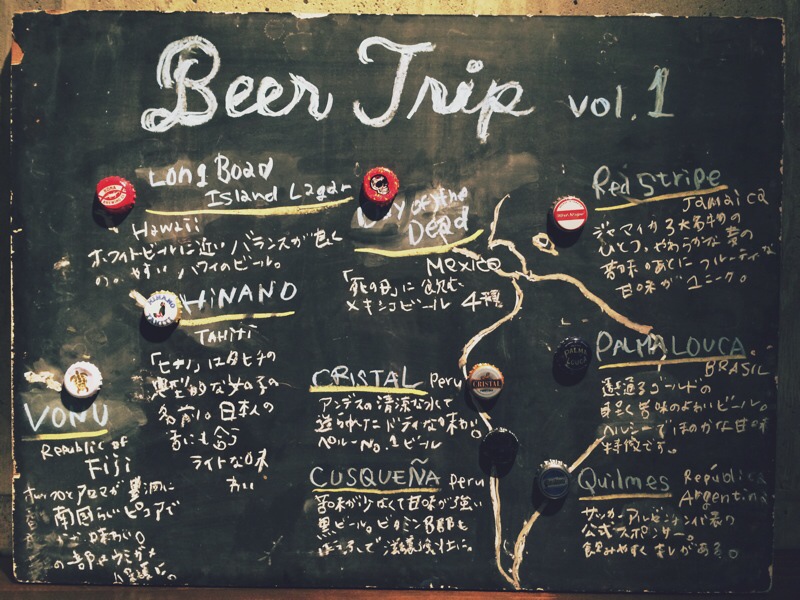 Beer Trip vol.1
Long Board
Island Lager
Hawaii
ホワイトビールに近いバランスが良く
のみやすいハワイのビール。
HINANO
TAHITI
「ヒナノ」はタヒチの
典型的な女の子の
名前。日本人の
舌にも合う
ライトな味
わい
VONU
Republic of
Fiji
ホップのアロマが豊潤に
南国らしいピュアで
味わい。
の一部をウミガメ
Day of the
Dead
Mexico
「死の日」に飲む
メキシコビール 4種
CRISTAL Peru
アンデスの清涼な水で
造られたドライな味わい。
ペルーNo.1ビール
CUSQUEÑA Peru
苦味が少なくて甘味が強い
黒ビール。ビタミンB群も
ほうふで滋養強壮に。
Red Stripe
Jamaica
ジャマイカ3大名物の
ひとつ。やわらかな麦の
苦味のあとにフルーティな
甘味がユニーク。
PALMA LOUCA
BRASIL
透き通るゴールドの
苦味のよわいビール。
ヘルシーでほのかな甘味
特徴です。
Quilmes República
Argentina
サッカーアルゼンチン代表の
公式スポンサー。
飲みやすくキレがある。